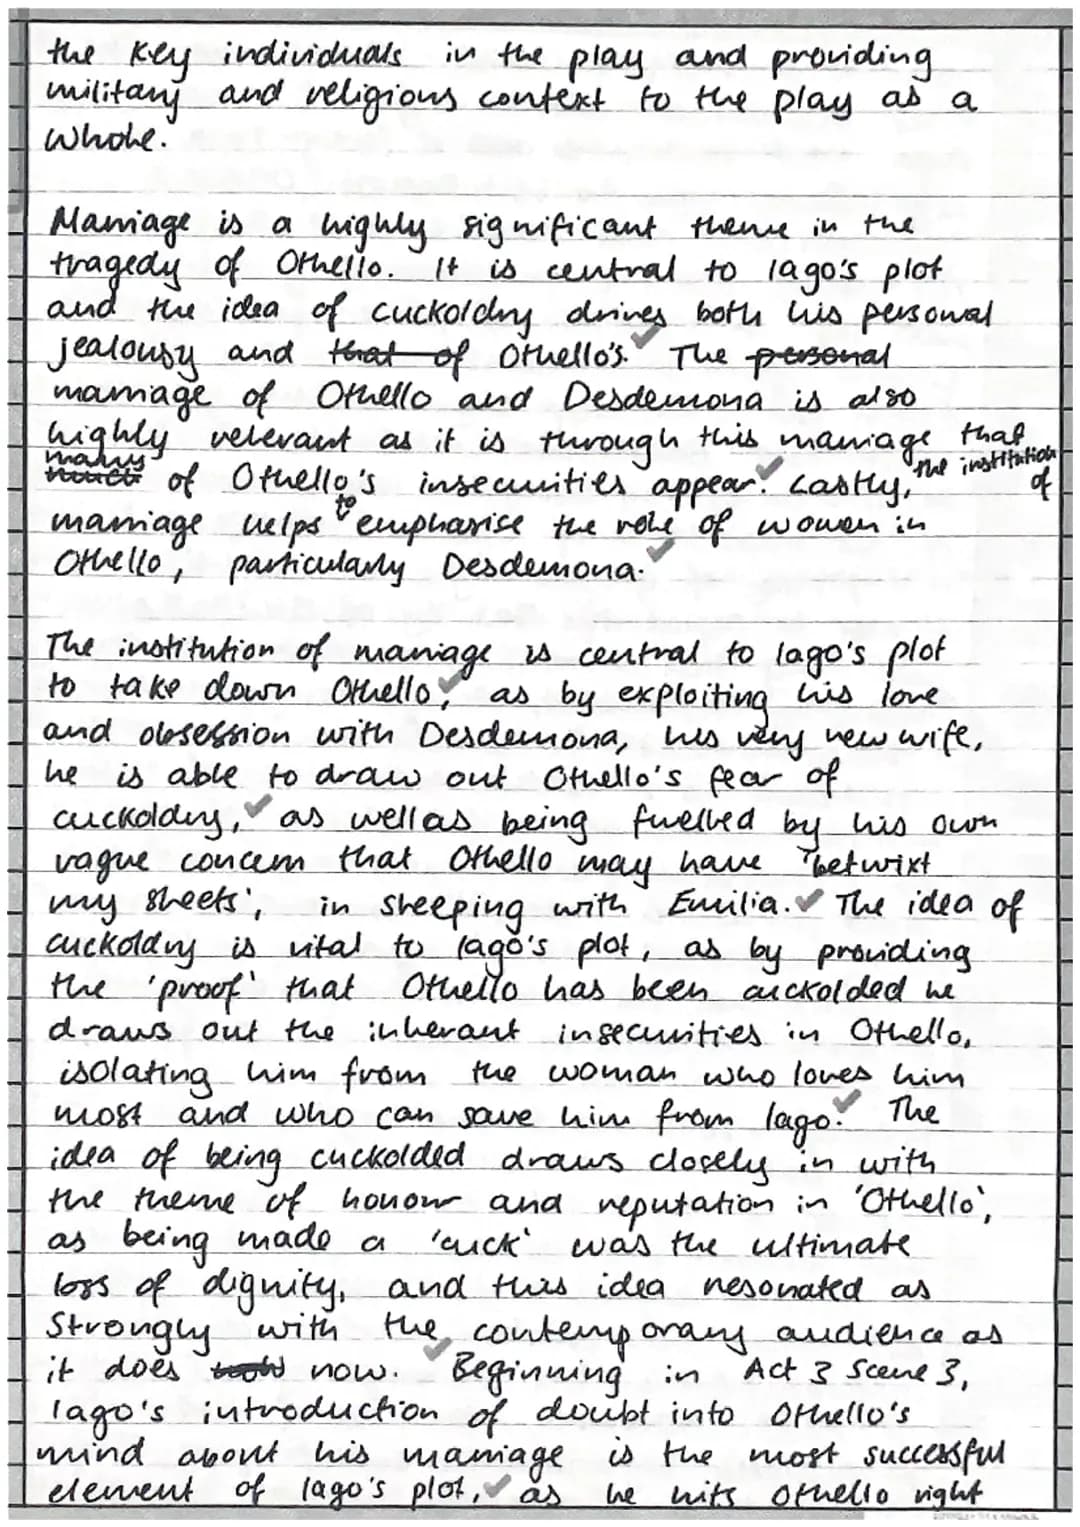 the key individuals in the play and providing
military and religious context to the play as a
whole.
Marriage is a highly significant theme in the
tragedy of Othello. It is central to Iago's plot
and the idea of cuckoldry drives both his personal
jealousy and that of Othello's. The personal
marriage of Othello and Desdemona is also
highly relevant as it is through this marriage that
many of Othello's insecurities appear. Lastly, the institution of
marriage helps to emphasise the role of women in
Othello, particularly Desdemona.
The institution of marriage is central to Iago's plot
to take down Othello, as by exploiting his love
and obsession with Desdemona, his very new wife,
he is able to draw out Othello's fear of
cuckoldry, as well as being fuelled by his own
vague concern that Othello may have 'betwixt
my sheets', in sleeping with Emilia. The idea of
cuckoldry is vital to Iago's plot, as by providing
the 'proof' that Othello has been cuckolded he
draws out the inherant insecurities in Othello,
isolating him from the woman who loves him
most and who can save him from Iago. The
idea of being cuckolded draws closely in with
the theme of honour and reputation in 'Othello',
as being made a 'cuck' was the ultimate
loss of dignity, and this idea resonated as
strongly with the contemporary audience as
it does now. Beginning in Act 3 Scene 3,
Iago's introduction of doubt into Othello's
mind about his marriage is the most successful
element of Iago's plot, as he hits Othello right